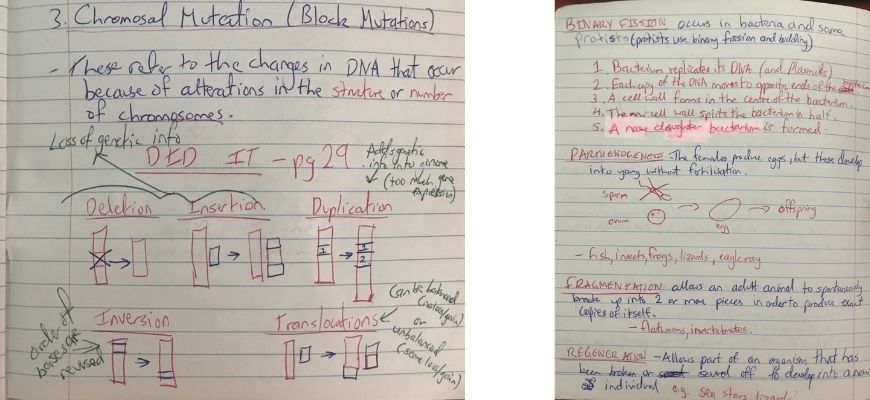 3. Chromosal Mutation (Block Mutations)
- These refer to the changes in DNA that occur
because of alterations in the structure or number
of chromosomes.
Loss of genetic info
DID IT - pg 29
Adds genetic
info into genome
(too much gene
expression)
Deletion Insertion Duplication
2
2
2
Inversion
order of
bases are
revised
Translocations
Can be balanced
(no loss/gain)
or
unbalanced
(some loss/gain)
BINARY FISSION occurs in bacteria and some
protists (protists use binary fission and budding)
1. Bacterium replicates its DNA (and Plasmids)
2. Each copy of the DNA moves to opposite ends of the bacterium
3. A cell wall forms in the centre of the bacterium.
4. The cell wall splits the bacterium in half.
5. A new daughter bacterium is formed.
PARTHENOGENESIS - The females produce eggs, but these develop
into young without fertilisation.
sperm
ovum
egg
offspring
- fish, insects, frogs, lizards, eagle ray
FRAGMENTATION allows an adult animal to spontaneously
break up into 2 or more pieces in order to produce exact
copies of itself.
- flatworms, invertebrates.
REGENERATION - Allows part of an organism that has
been broken or severed off to develop into a new
individual e.g. sea stars, lizards